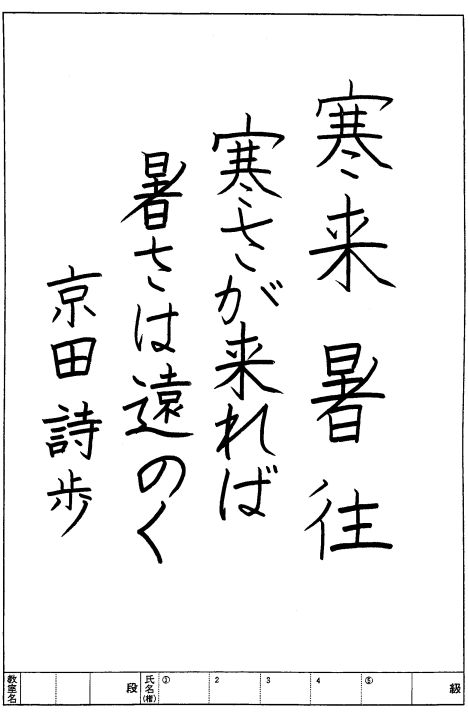 寒来暑往
寒さが来れば
暑さは遠のく
京田詩歩
教室名 段 氏名(権) ① 2 3 4 ⑤ 級